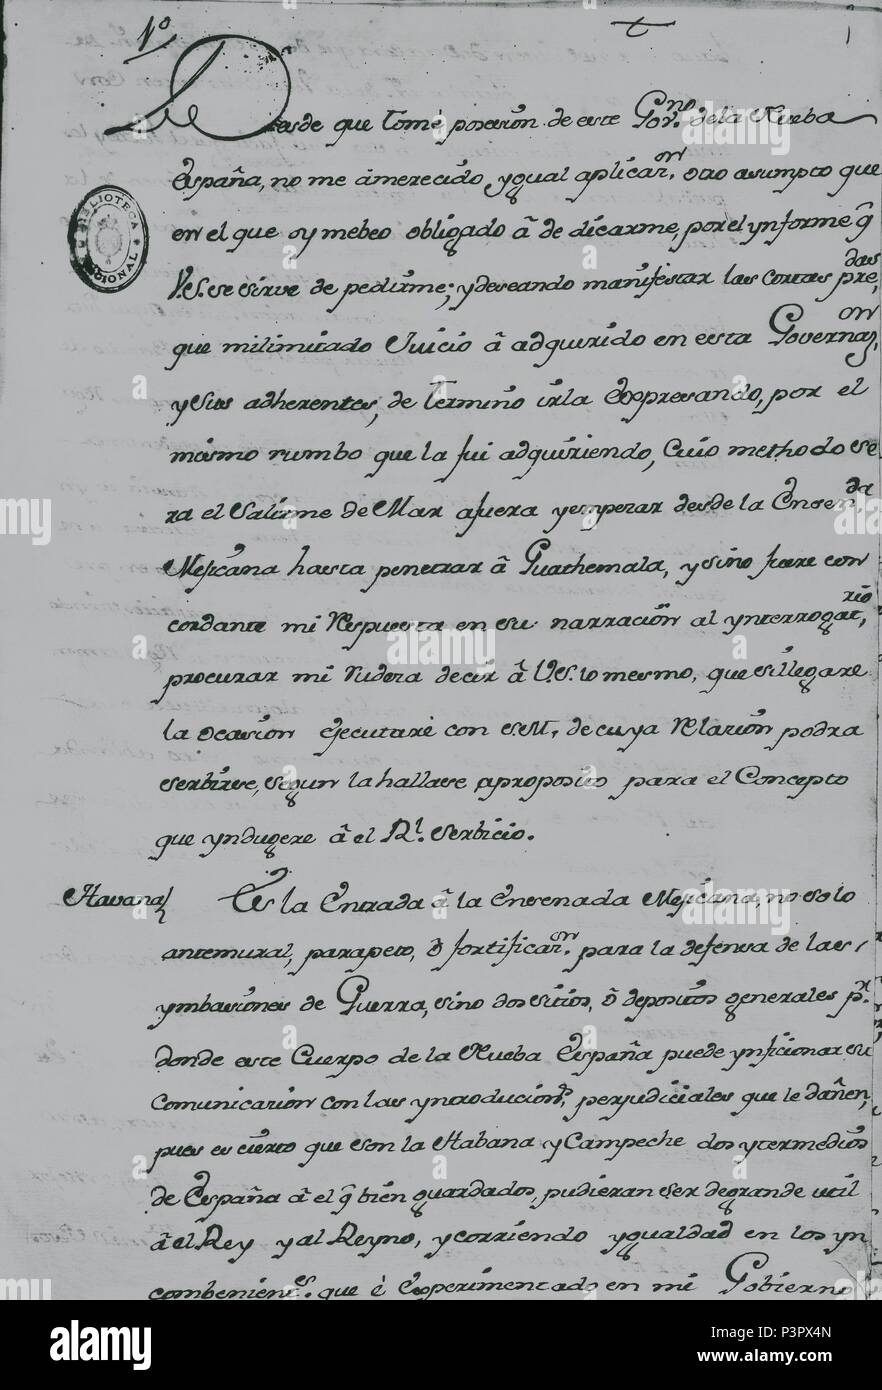 1º
Desde que tomè posesion de este Gov.no de la Nueba
España, no me â merecido, ygual aplicaz.on otro asumpto que
en el que oy me beo obligado â de dicarme, por el ynforme q̃
V.S. se sirve de pedirme; y deseando manifestar las cortas pre,das
que mi limitado Juicio â adquirido en esta Governaz,on
y sus adherentes, de termino irla Expresando, por el
mismo rumbo que la fui adquiriendo, Cuio methodo se
ra el Salirme de Mar afuera y empezar desde la Ensen,da
Mejicana hasta penetrar â Guathemala, y sino fuere con
cordante mi Respuesta en su narracion al ynterrogat,rio
procurar mi Rudeza decir â V.S. lo mesmo, que si llegare
la ocasion ejecutarè con de cuya Relacion podra
serbirse, segun la hallase aproposito para el Concepto
que yndugere â el R.l Serbicio.
Havana Es la Entrada â la Ensenada Mejicana, no solo
antemural, parapeto, ò fortificaz.on para la defensa de las
ymbasiones de Guerra, sino dos sitios, ò depositos generales p.r
donde este Cuerpo de la Nueba España puede ynficionar su
Comunicacion con las yntroducion.s perjudiciales que le dañen,
pues es cierto que son la Habana y Campeche dos yntermedios
de España â el q̃ bien guardados, pudieran ser de grande util
â el Rey y al Reyno, y corriendo ygualdad en los yn
combenien.es que è Experimentado en mi Gobierno
BIBLIOTECA NACIONAL
alamy
Image ID: P3PX4N
www.alamy.com